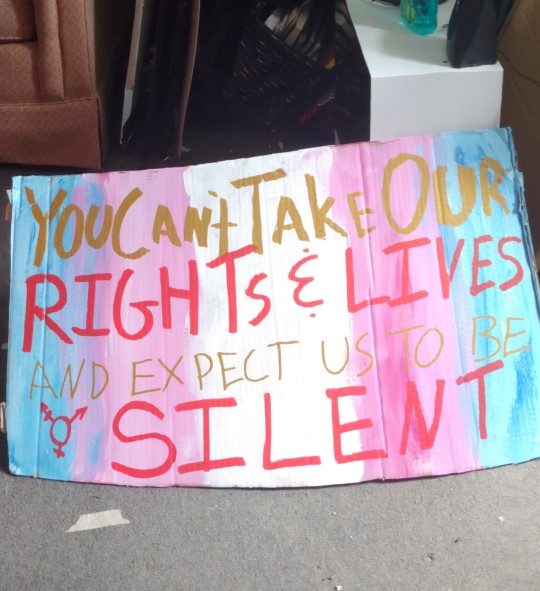 YOU CAN'T TAKE OUR
RIGHTS & LIVES
AND EXPECT US TO BE
SILENT